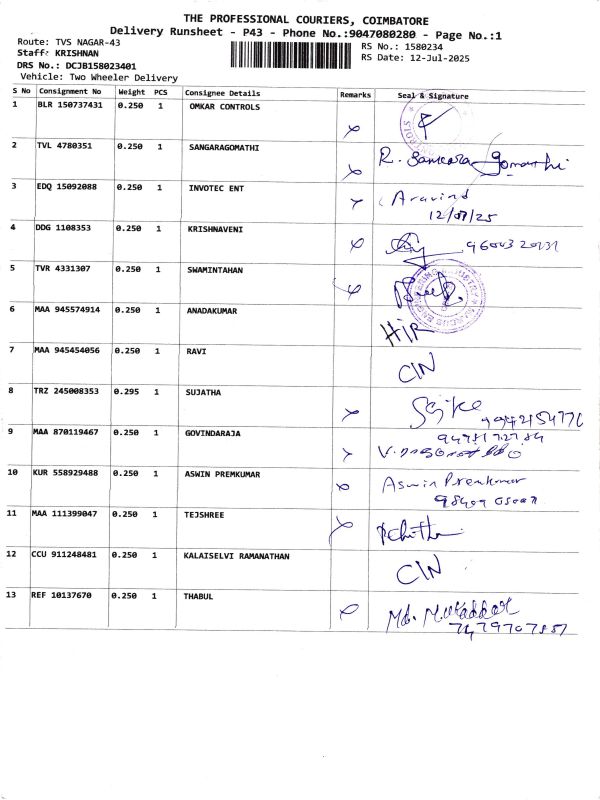 THE PROFESSIONAL COURIERS, COIMBATORE
Delivery Runsheet - P43 - Phone No.:9047080280 - Page No.:1
Route: TVS NAGAR-43
RS No.: 1580234
Staff: KRISHNAN
RS Date: 12-Jul-2025
DRS No.: DCJB158023401
Vehicle: Two Wheeler Delivery
S No Consignment No Weight PCS Consignee Details Remarks Seal & Signature
1 BLR 150737431 0.250 1 OMKAR CONTROLS
2 TVL 4780351 0.250 1 SANGARAGOMATHI R. Sankara Gomathi
3 EDQ 15092088 0.250 1 INVOTEC ENT Aravind
12/07/25
4 DDG 1108353 0.250 1 KRISHNAVENI
5 TVR 4331307 0.250 1 SWAMINTAHAN
6 MAA 945574914 0.250 1 ANADAKUMAR H/R
7 MAA 945454056 0.250 1 RAVI C/N
8 TRZ 245008353 0.295 1 SUJATHA
9 MAA 870119467 0.250 1 GOVINDARAJA
10 KUR 558929488 0.250 1 ASWIN PREMKUMAR Aswin Premkumar
11 MAA 111399047 0.250 1 TEJSHREE
12 CCU 911248481 0.250 1 KALAISELVI RAMANATHAN C/N
13 REF 10137670 0.250 1 THABUL Md. Mukaddar